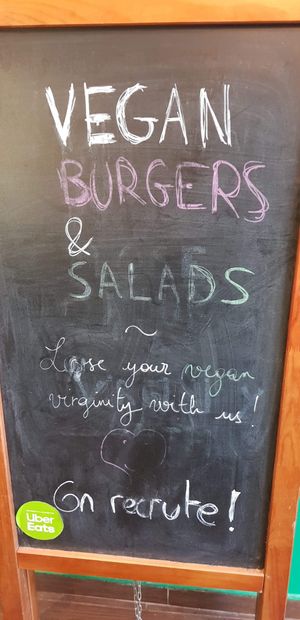 VEGAN
BURGERS
&
SALADS
~
Loose your vegan
virginity with us!
On recrute!
Uber
Eats